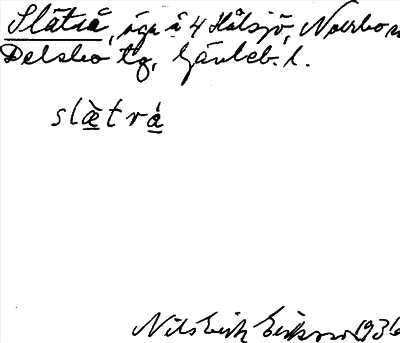 Slätrå, äga å 4 Hålsjö, Norrbo n
Delsbo tg, Gävleb. l.
slæ̀trá
Nils Erik Eriksson 1936